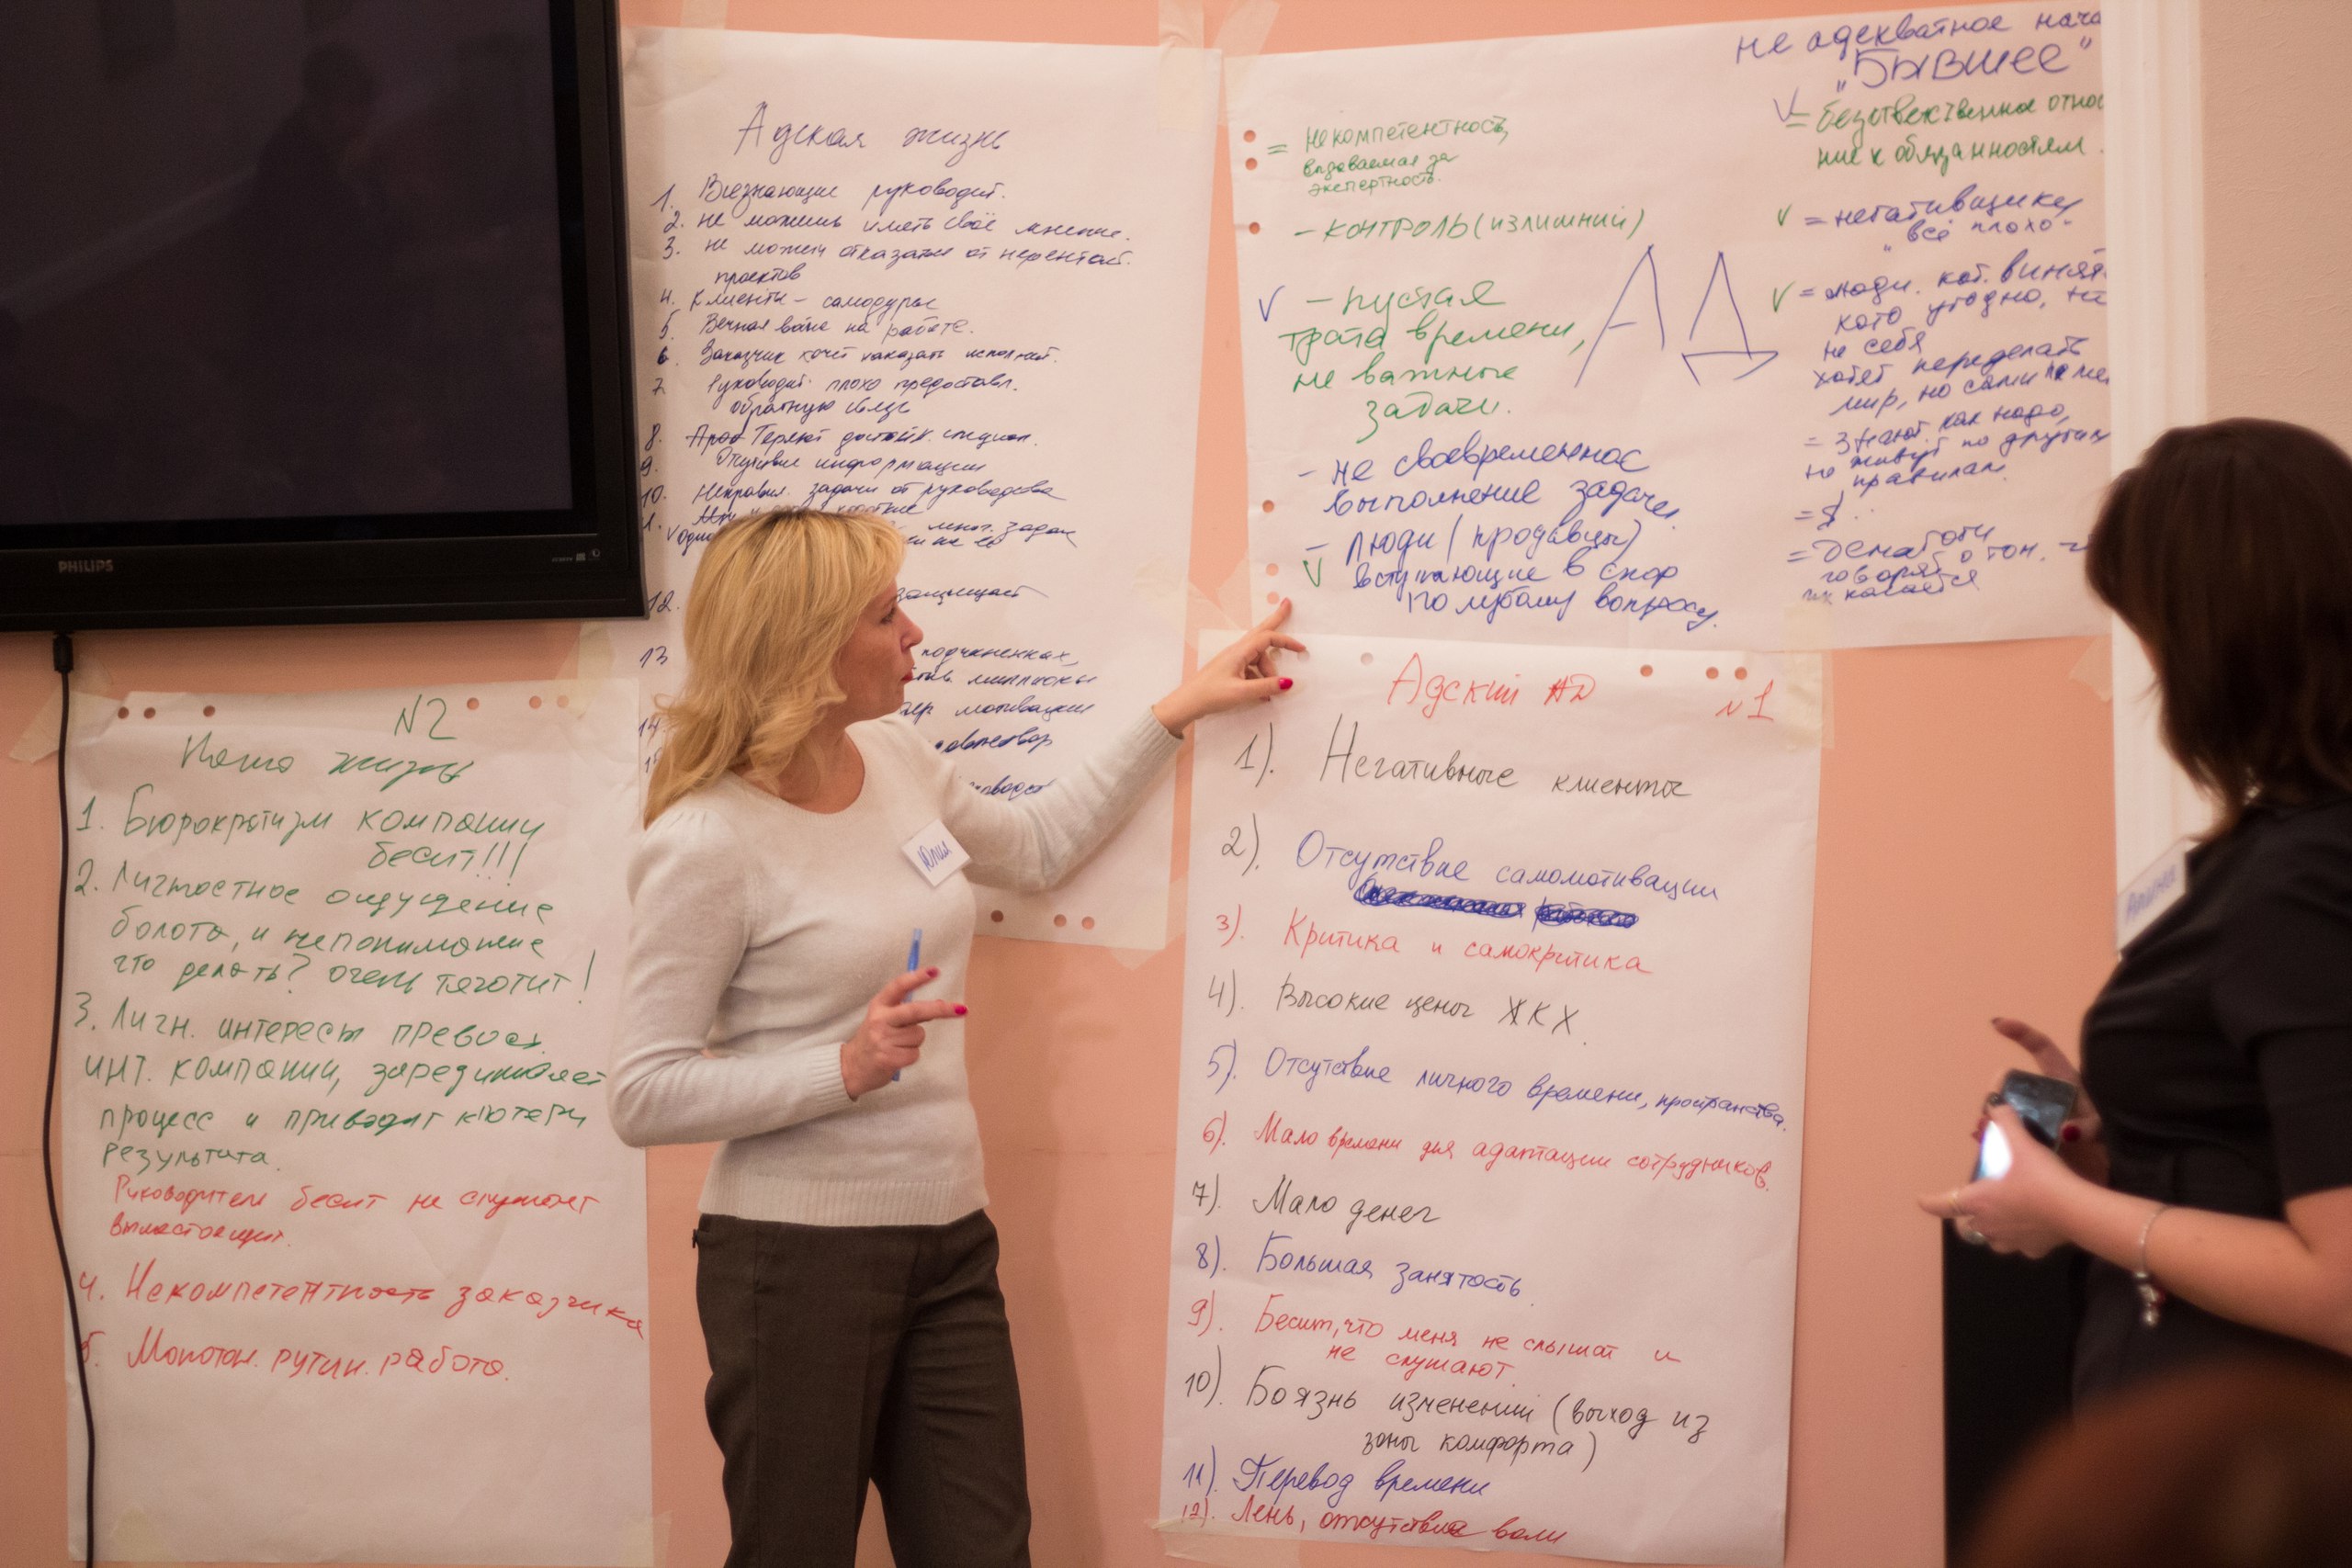 PHILIPS
Адская жизнь
1. Всезнающие руководит.
2. не можешь иметь своё мнение.
3. не можем отказаться от нерентаб.
проектов
4. Клиенты – самодуры
5. Вечная война на работе.
6. Заказчик хочет наказать исполнит.
7. Руководит. плохо предоставл.
обратную связь
8. Теряют
9. Отсутствие информации
10. Неправил. задачи от руководства
мног. задач
12.
защищает
13
подчиненных,
миллионы
мотивации
14.
15
= некомпетентность,
выдаваемая за
экспертность.
– КОНТРОЛЬ (излишний)
V – пустая
трата времени,
не важные
задачи.
АД
– не своевременное
выполнение задачи
– люди (продавцы)
V вступающие в спор
по любому вопросу.
не адекватное нача
"Бывшее"
V = безответственное отно
ние к обязанностям.
V = негативщики
"всё плохо"
V = люди. кот. винят
кого угодно, но
не себя
хотят переделать
мир, но сами не
= знают как надо,
но живут по другим
правилам.
= демагоги
говорят о том.
их касается
N2
Наша жизнь
1. Бюрократизм компании
бесит!!!
2. Личностное ощущение
болота, и непонимание
что делать? очень тяготит!
3. Личн. интересы превосх.
инт. компании,
процесс и приводят к потери
результата.
Руководители бесит не слушают
вышестоящит.
4. Некомпетентность заказчика
5. Монотон. рутин. работа.
Адский АД N1
1). Негативные клиенты
2). Отсутствие самомотивации
3). Критика и самокритика
4). Высокие цены ЖКХ.
5). Отсутствие личного времени, пространства.
6). Мало времени для адаптации сотрудников.
7). Мало денег
8). Большая занятость.
9). Бесит, что меня не слышат и
не слушают.
10). Боязнь изменений (выход из
зоны комфорта)
11). Перевод времени
12). Лень, отсутствие воли
Юлия